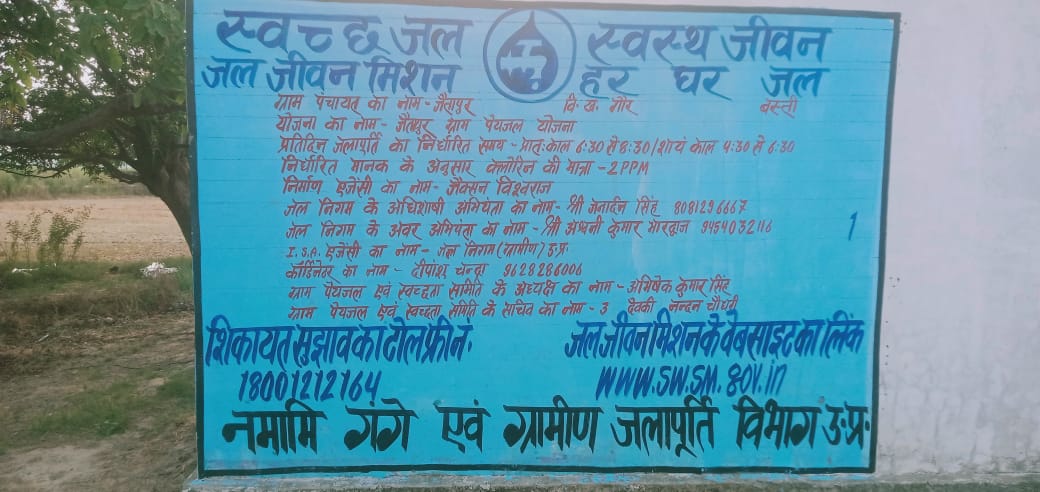 स्वच्छ जल स्वस्थ जीवन
जल जीवन मिशन हर घर जल
ग्राम पंचायत का नाम - जैतापुर वि. ख. गौर बस्ती
योजना का नाम - जैतापुर ग्राम पेयजल योजना
प्रतिदिन जलापूर्ति का निर्धारित समय - प्रातः काल 6:30 से 8:30 / शायं काल 4:30 से 6:30
निर्धारित मानक के अनुसार क्लोरिन की मात्रा - 2PPM
निर्माण एजेंसी का नाम - जैक्सन विश्वराज
जल निगम के अधिशाषी अभियंता का नाम - श्री जनार्दन सिंह 8081296667
जल निगम के अवर अभियंता का नाम - श्री अश्वनी कुमार भारद्वाज 9454032116
1
I.S.A. एजेंसी का नाम - जल निगम (ग्रामीण) उ.प्र.
कॉर्डिनेटर का नाम - दीपांशु चन्द्रा 9628286006
ग्राम पेयजल एवं स्वच्छता समिति के अध्यक्ष का नाम - अभिषेक कुमार सिंह
ग्राम पेयजल एवं स्वच्छता समिति के सचिव का नाम - 3 देवकी नन्दन चौधरी
शिकायत सुझाव का टोल फ्री नं. जल जीवन मिशन के वेबसाइट का लिंक
18001212164 www.swsm.gov.in
नमामि गंगे एवं ग्रामीण जलापूर्ति विभाग उ.प्र.